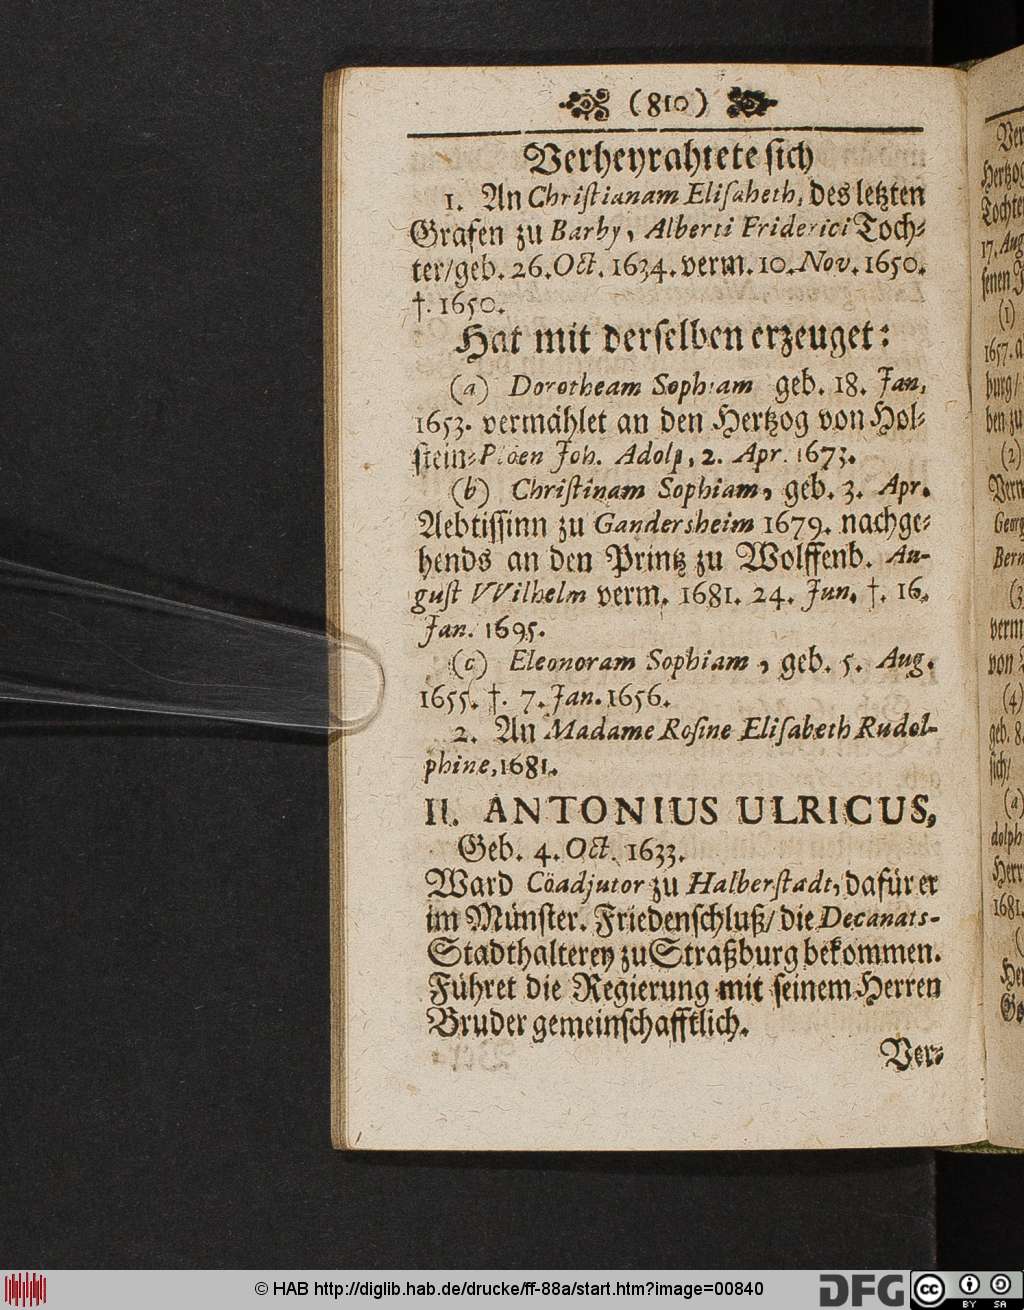 (810)
Verheyrahtete sich
1. An Christianam Elisabeth, des letzten
Grafen zu Barby, Alberti Friderici Toch-
ter/geb. 26. Oct. 1634. verm. 10. Nov. 1650.
†. 1650.
Hat mit derselben erzeuget:
(a) Dorotheam Sophiam geb. 18. Jan,
1653. vermählet an den Hertzog von Hol-
stein-Ploen Joh. Adolp, 2. Apr. 1673.
(b) Christinam Sophiam, geb. 3. Apr.
Aebtissinn zu Gandersheim 1679. nachge-
hends an den Printz zu Wolffenb. Au-
gust VVilhelm verm. 1681. 24. Jun. †. 16.
Jan. 1695.
(c) Eleonoram Sophiam, geb. 5. Aug.
1655. †. 7. Jan. 1656.
2. An Madame Rosine Elisabeth Rudol-
phine, 1681.
II. ANTONIUS ULRICUS,
Geb. 4. Oct. 1633.
Ward Cöadjutor zu Halberstadt, dafür er
im Münster. Friedenschluß/ die Decanats-
Stadthalterey zu Straßburg bekommen.
Führet die Regierung mit seinem Herren
Bruder gemeinschafftlich.
Ver-
Hertzog
Tochter
17. Aug
(1)
1657.
burg/
ben zu
(2)
Georg
verm
von
(4)
geb. 8.
sich/
(a)
dolph
Herr
1681.
© HAB http://diglib.hab.de/drucke/ff-88a/start.htm?image=00840
DFG
CC BY SA